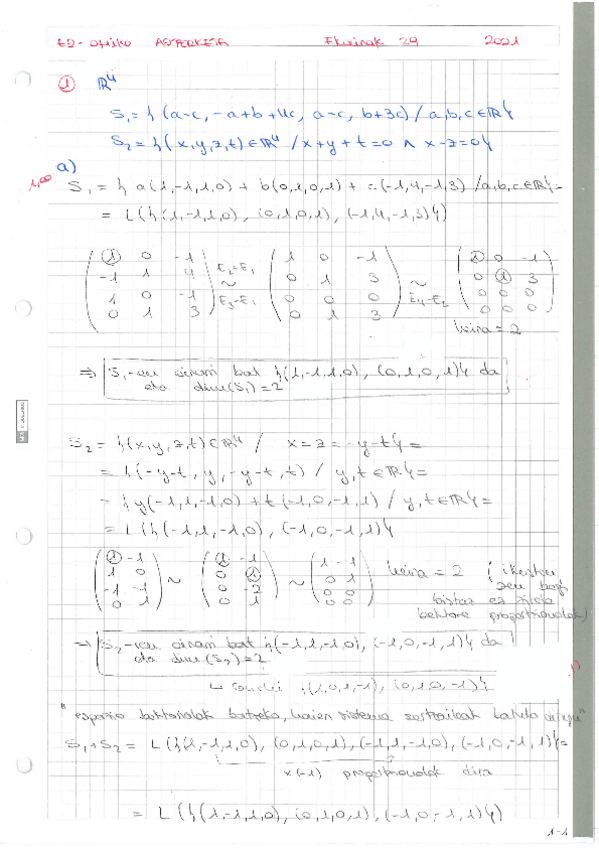 AZTERKETA Ekainak 29 2021
1 ℝ⁴
S₁ = { (a-c, -a+b+4c, a-c, b+3c) / a,b,c ∈ ℝ }
S₂ = { (x,y,z,t) ∈ ℝ⁴ / x+y+t=0 ∧ x-z=0 }
a)
1,00
S₁ = { a(1,-1,1,0) + b(0,1,0,1) + c(-1,4,-1,3) / a,b,c ∈ ℝ } =
= L({(1,-1,1,0), (0,1,0,1), (-1,4,-1,3)})
( 1 0 -1 ; -1 1 4 ; 1 0 -1 ; 0 1 3 ) E₂+E₁ ~ E₃-E₁ ( 1 0 -1 ; 0 1 3 ; 0 0 0 ; 0 1 3 ) ~ E₄-E₂ ( 1 0 -1 ; 0 1 3 ; 0 0 0 ; 0 0 0 )
heina = 2
⇒ S₁-ren oinarri bat {(1,-1,1,0), (0,1,0,1)} da
eta dim(S₁) = 2
S₂ = { (x,y,z,t) ∈ ℝ⁴ / x=z=-y-t } =
= { (-y-t, y, -y-t, t) / y,t ∈ ℝ } =
= { y(-1,1,-1,0) + t(-1,0,-1,1) / y,t ∈ ℝ } =
= L({(-1,1,-1,0), (-1,0,-1,1)})
( 1 -1 ; 1 0 ; -1 -1 ; 0 1 ) ~ ( 1 -1 ; 0 1 ; 0 -2 ; 0 1 ) ~ ( 1 -1 ; 0 1 ; 0 0 ; 0 0 ) heina = 2 (ikustea
bektore proportzionalak)
⇒ S₂-ren oinarri bat {(-1,1,-1,0), (-1,0,-1,1)} da
eta dim(S₂) = 2
{(1,0,1,-1), (0,1,0,-1)}
" espazio bektorialak batzeko, haien sistema sortzaileak batuko ditugu"
S₁+S₂ = L({(1,-1,1,0), (0,1,0,1), (-1,1,-1,0), (-1,0,-1,1)}) =
x(-1) proportzionalak dira
= L({(1,-1,1,0), (0,1,0,1), (-1,0,-1,1)})
1-1